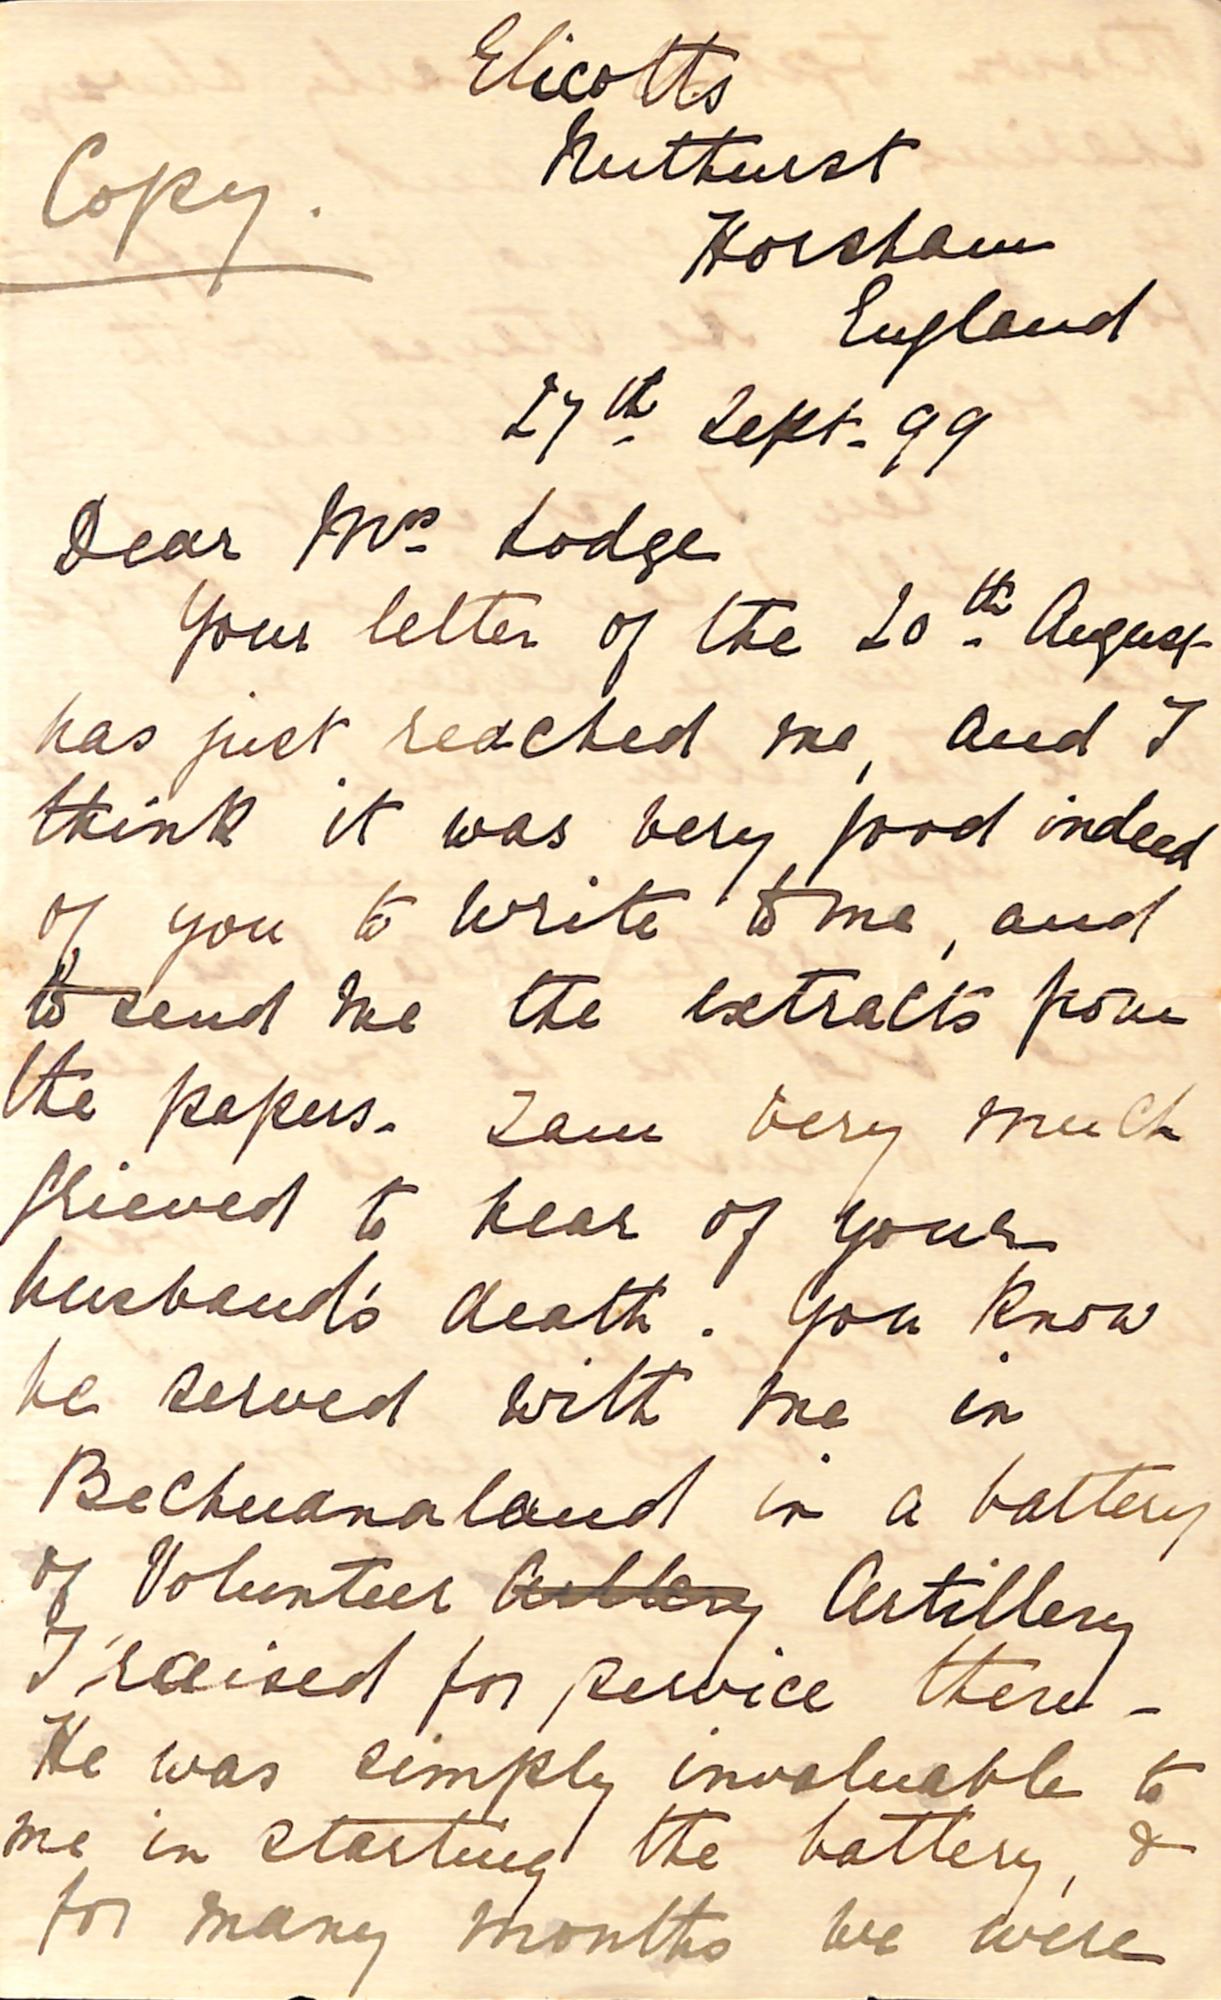 Elicotts
Nuthurst
Copy.
Horsham
England
27th Sept. 99
Dear Mrs Lodge
Your letter of the 20th August
has just reached me, and I
think it was very good indeed
of you to write to me, and
to send me the extracts from
the papers. I am very much
grieved to hear of your
husband's death. You know
he served with me in
Bechuanaland in a battery
of Volunteer Artillery
I raised for service there -
He was simply invaluable to
me in starting the battery, &
for many months we were